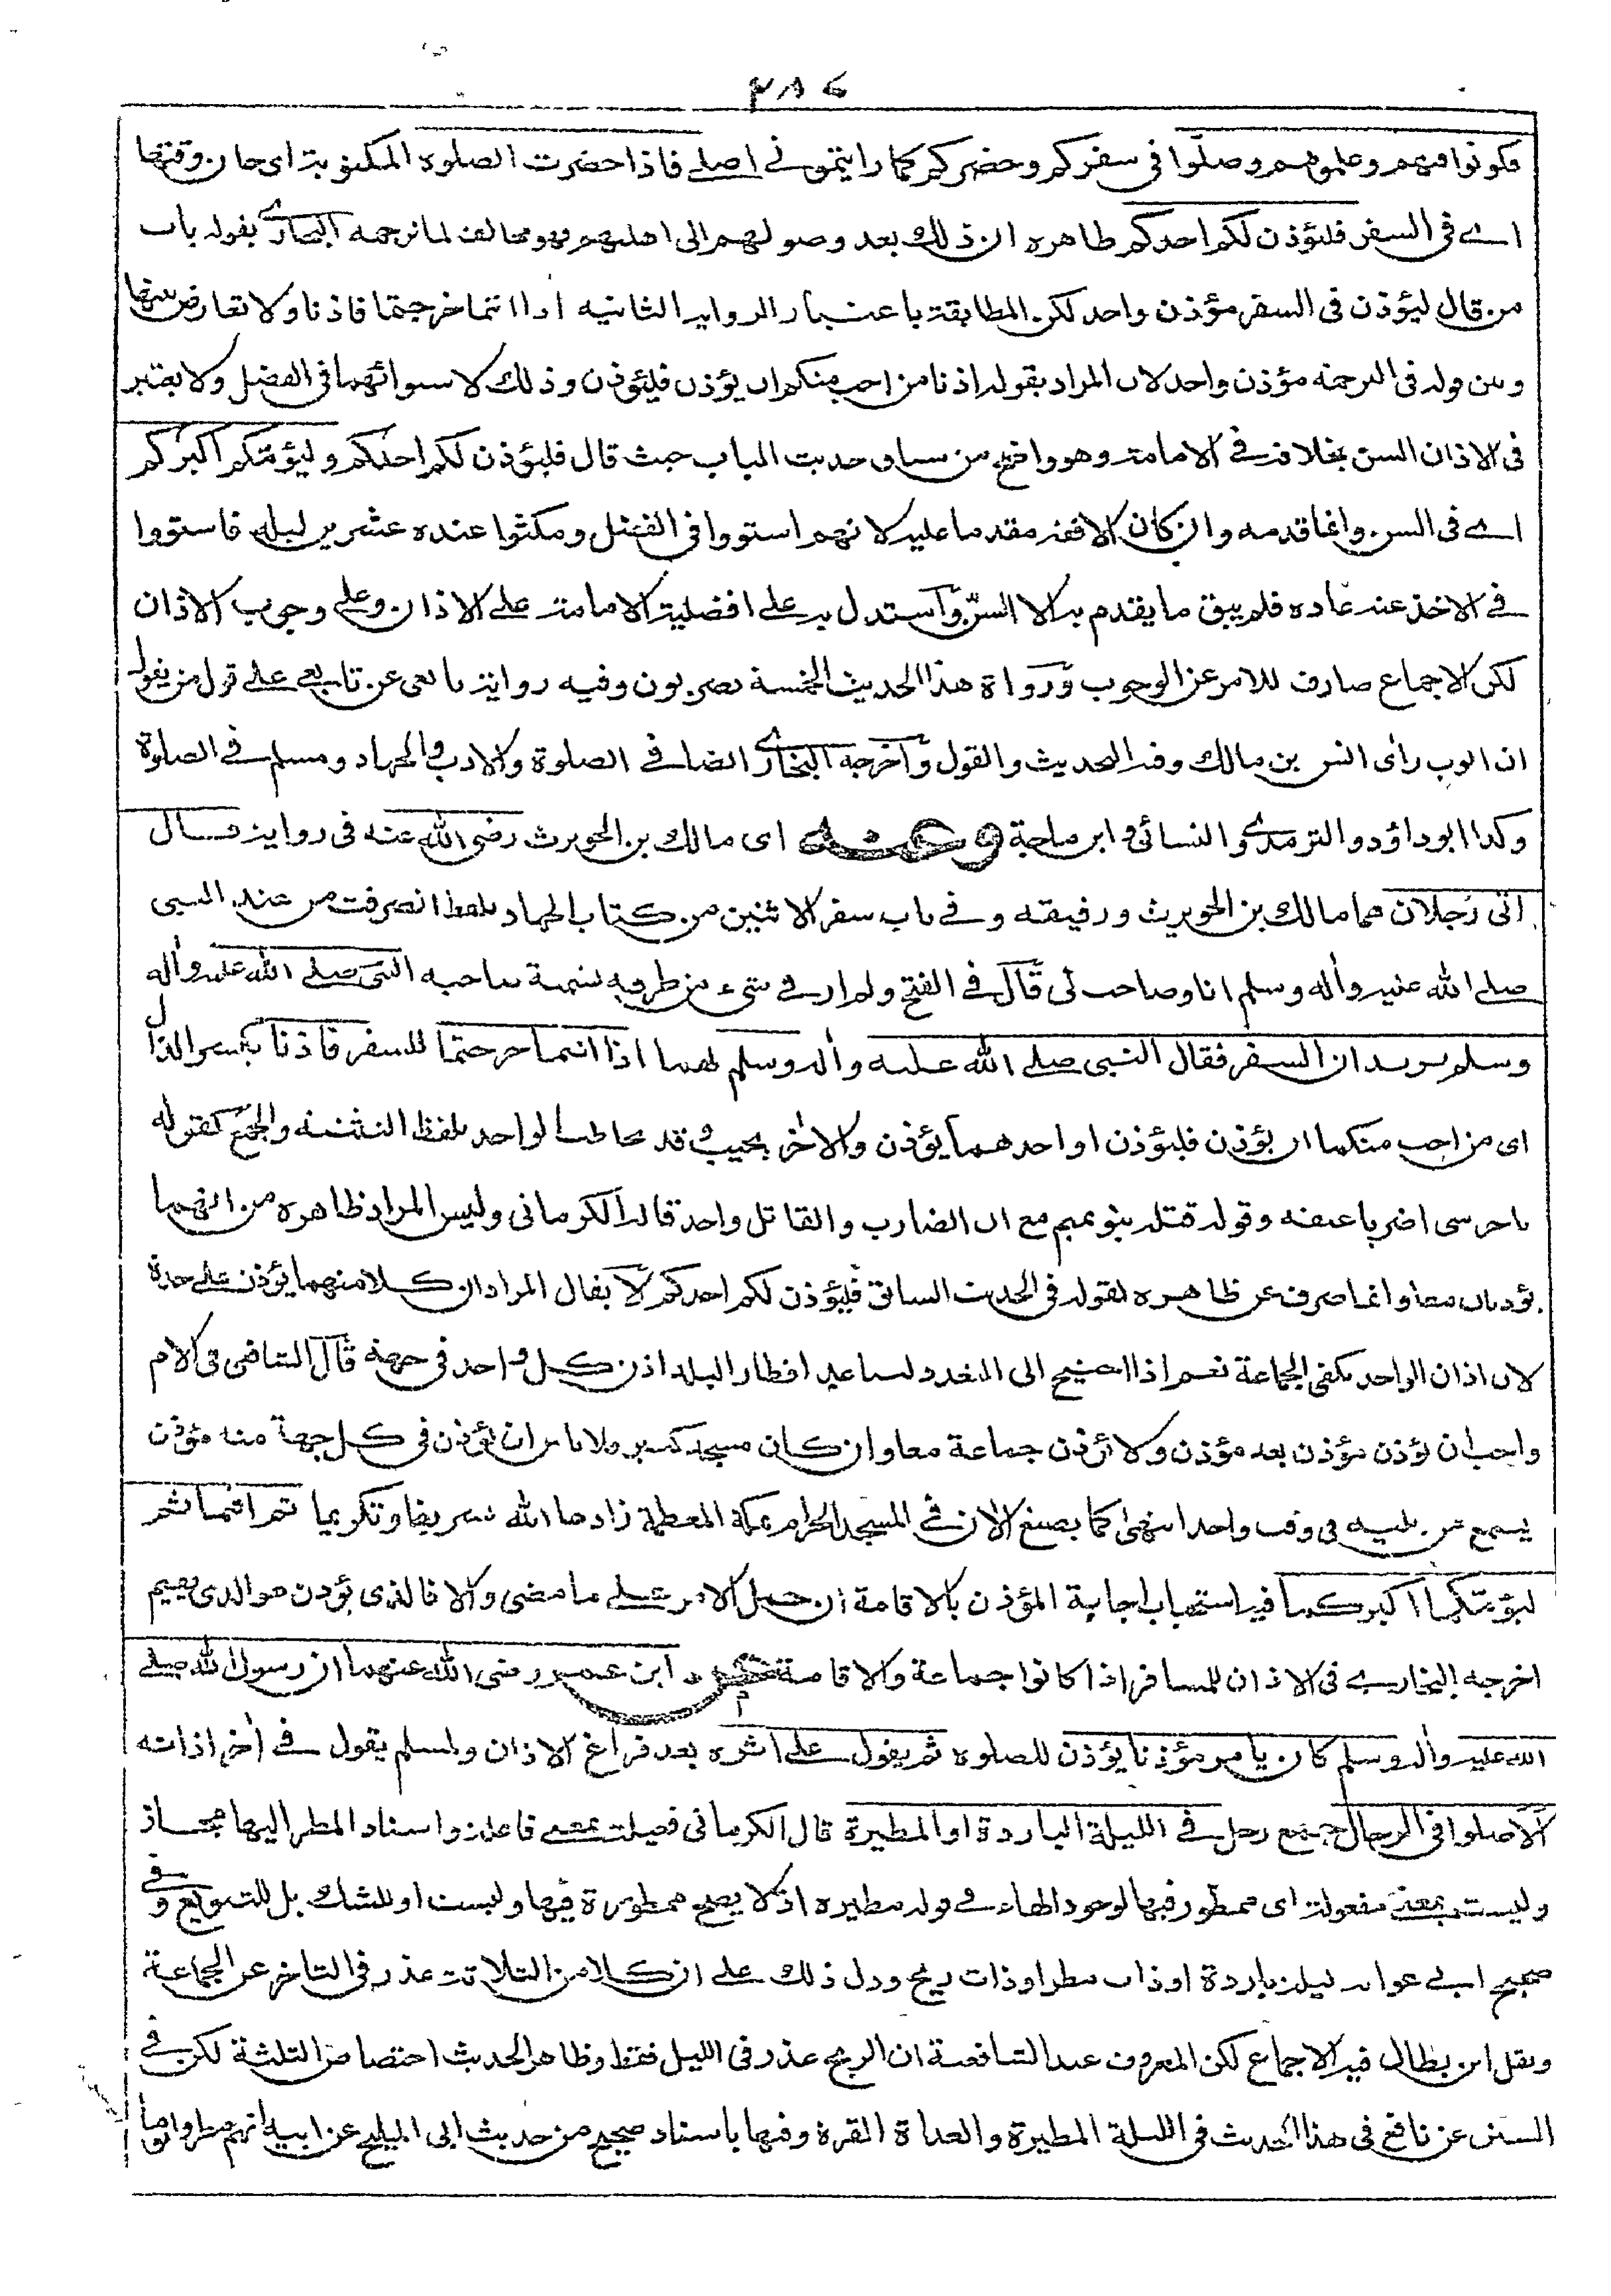 ٢٨٦
فكونوا فيهم وعلموهم وصلّوا في سفركم وحضركم كما رايتموني اصلي فاذا حضرت الصلوة المكتوبة اى حان وقتها
اي في السفر فليؤذن لكم احدكم ظاهره ان ذلك بعد وصولهم الى اهليهم وهو مخالف لما ترجمه البخاري بقوله باب
من قال ليؤذن في السفر مؤذن واحد لكن المطابقة باعتبار الرواية الثانية اذا انتما خرجتما فاذنا ولا تعارض بينها
وبين قوله في الترجمة مؤذن واحد لان المراد بقوله اذنا من احب منكم ان يؤذن فليؤذن وذلك لاستوائهما في الفضل ولا يعتبر
في الاذان السن بخلافه في الامامة وهو واضح من سياق حديث الباب حيث قال فليؤذن لكم احدكم وليؤمكم اكبركم
اي في السن وانما قدمه وان كان الافقه مقدما عليه لانهم استووا في الفضل ومكثوا عنده عشرين ليلة فاستووا
في الاخذ عنه عادة فلم يبق ما يقدم به الا السنّ واستدل به على افضلية الامامة على الاذان وعلى وجوب الاذان
لكن الاجماع صارف للامر عن الوجوب ورواة هذا الحديث الخمسة بصريون وفيه رواية تابعى عن تابعى على قول من يقول
ان ايوب رأى انس بن مالك وفيه الحديث والقول وأخرجه البخاري ايضا في الصلوة والادب والجهاد ومسلم في الصلوة
وكذا ابوداؤد والترمذي والنسائي وابن ماجة وعنه اى مالك بن الحويرث رضى الله عنه في رواية قال
اتى رجلان هما مالك بن الحويرث ورفيقه وفي باب سفر الاثنين من كتاب الجهاد بلفظ انصرفت من عند النبى
صلى الله عليه وأله وسلم انا وصاحب لى قال في الفتح ولم ار في شىء من طرقه تسمية صاحبه النبى صلى الله عليه وأله
وسلم يريدان السفر فقال النبى صلى الله عليه وأله وسلم لهما اذا انتما خرجتما للسفر فاذنا بكسر الذال
اى من احب منكما ان يؤذن فليؤذن او احدهما يؤذن والاخر يجيب وقد يخاطب الواحد بلفظ التثنية والجمع كقوله
يا حرسى اضربا عنقه وقوله قتله بنو تميم مع ان الضارب والقاتل واحد قاله الكرمانى وليس المراد ظاهره من انهما
يؤذنان معا وانما صرف عن ظاهره لقوله في الحديث السابق فليؤذن لكم احدكم لا يقال المراد ان كلا منهما يؤذن على حدة
لان اذان الواحد يكفى الجماعة نعم اذا احتيج الى التعدد لتباعد اقطار البلد اذن كل واحد في جهة قال الشافعى في الام
واحب ان يؤذن مؤذن بعد مؤذن ولا يؤذن جماعة معا وان كان مسجد كبير فلا باس ان يؤذن في كل جهة منه مؤذن
يسمع من يليه في وقت واحد انتهى كما يصنع الان في المسجد الحرام بمكة المعظمة زادها الله تشريفا وتكريما ثم اقيما ثم
ليؤمكما اكبركما فيه استحباب اجابة المؤذن بالاقامة ان حمل الامر على ما مضى والا فالذى يؤذن هو الذى يقيم
اخرجه البخاري في الاذان للمسافر اذا كانوا جماعة والاقامة عن ابن عمر رضى الله عنهما ان رسول الله صلى
الله عليه وأله وسلم كان يامر مؤذنا يؤذن للصلوة ثم يقول على اثره بعد فراغ الاذان ولمسلم يقول في أخر اذانه
ألا صلوا في الرحال جمع رحل في الليلة الباردة او المطيرة قال الكرمانى فعيلة بمعنى فاعلة واسناد المطر اليها مجاز
وليست بمعنى مفعولة اى ممطور فيها لوجود الهاء في قوله مطيرة اذ لا يصح ممطورة فيها وليست او للشك بل للتنويع وفي
صحيح ابى عوانه ليلة باردة او ذات مطر او ذات ريح ودل ذلك على ان كلا من الثلاثة عذر في التاخر عن الجماعة
ونقل ابن بطال فيه الاجماع لكن المعروف عند الشافعية ان الريح عذر في الليل فقط وظاهر الحديث اختصاص الثلثة لكن في
السنن عن نافع في هذا الحديث في الليلة المطيرة والغداة القرة وفيها باسناد صحيح من حديث ابى المليح عن ابيه انهم مطروا يوما